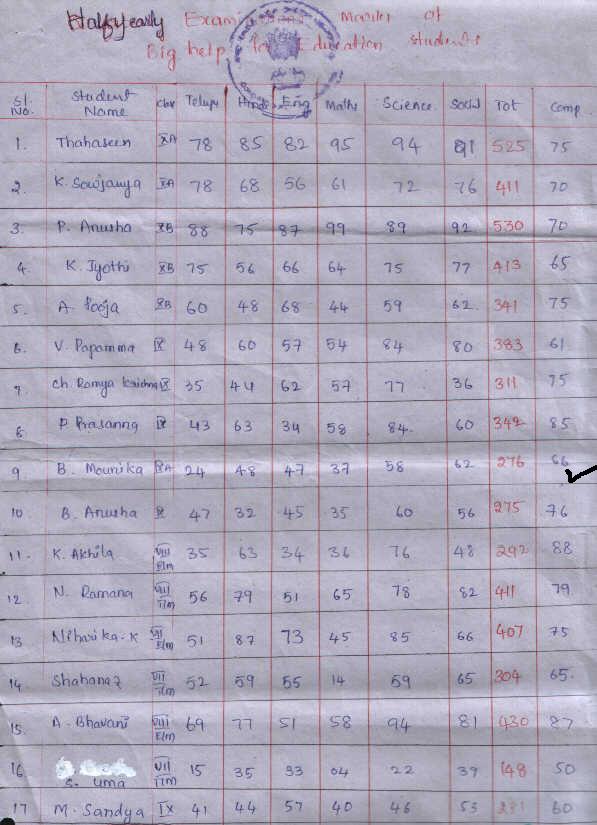 Halfyearly Examinations Marks of
Big help for Education students
Sl. No. Student Name Class Telugu Hindi Eng Maths Science Social Tot Comp
1. Thahaseen XA 78 85 82 95 94 91 525 75
2. K. Sowjanya XA 78 68 56 61 72 76 411 70
3. P. Anusha XB 88 75 87 99 89 92 530 70
4. K. Jyothi XB 75 56 66 64 75 77 413 65
5. A. Pooja XB 60 48 68 44 59 62. 341 75
6. V. Papamma IX 48 60 57 54 84 80 383 61
7. Ch. Ramya Krishna IX 35 44 62 57 77 36 311 75
8 P. Prasanna IX 43 63 34 58 84. 60 342 85
9 B. Mounika IXA 24 48 47 37 58 62 276 66
10. B. Anusha IX 47 32 45 35 60 56 275 76
11. K. Akhila VIII E/m 35 63 34 36 76 48 292 88
12. N. Ramana VIII T/m 56 79 51 65 78 82 411 79
13 Niharika. K VII E/m 51 87 73 45 85 66 407 75
14 Shahanaz VII T/m 52 59 55 14 59 65 304 65.
15. A. Bhavani VIII E/m 69 77 51 58 94 81 430 87
16 S. Uma VII T/m 15 35 33 04 22 39 148 50
17 M. Sandya IX 41 44 57 40 46 53 281 60